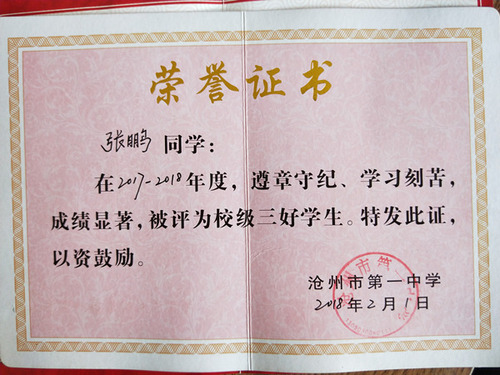 荣誉证书
张鹏 同学：
在2017-2018年度，遵章守纪、学习刻苦，
成绩显著，被评为校级三好学生。特发此证，
以资鼓励。
沧州市第一中学
2018年2月1日